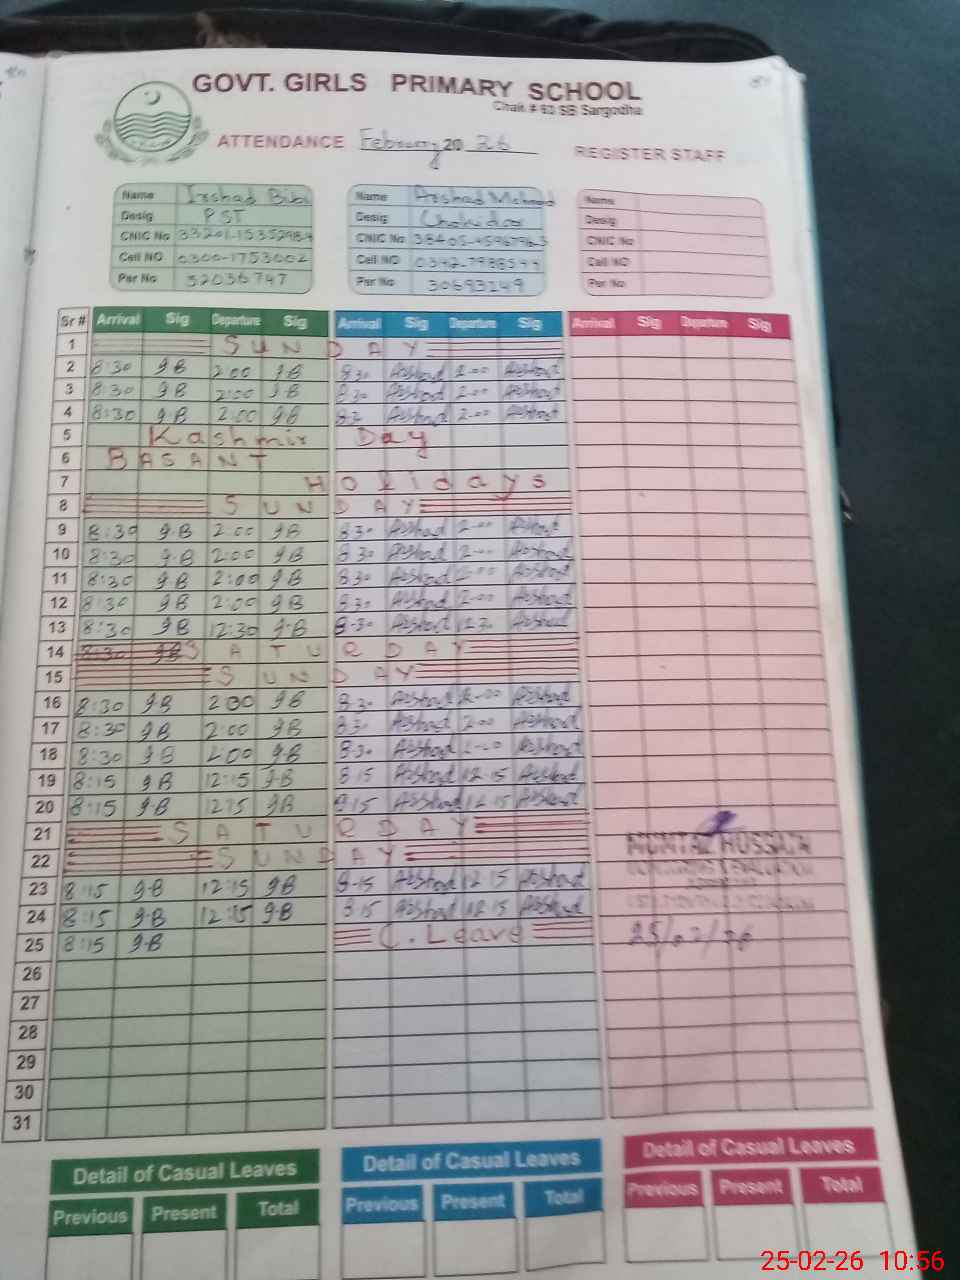 GOVT. GIRLS PRIMARY SCHOOL
Chak # 63 SB Sargodha
ATTENDANCE February 20 26 REGISTER STAFF
Name Irshad Bibi Name Arshad Mehmood Name
Desig PST Desig Chokidar Desig
CNIC No CNIC No CNIC No
Cell NO 0300-1753002 Cell NO Cell NO
Per No 52036747 Per No 30693249 Per No
Sr # Arrival Sig Departure Sig Arrival Sig Departure Sig Arrival Sig Departure Sig
1 SUNDAY
2 8:30 g.B 2:00 g.B 8:30 Arshad 2-00 Arshad
3 8:30 g.B 2:00 g.B 8:30 Arshad 2-00 Arshad
4 8:30 g.B 2:00 g.B 8:30 Arshad 2-00 Arshad
5 Kashmir Day
6 BASANT
7 Holidays
8 SUNDAY
9 8:30 g.B 2:00 g.B 8:30 Arshad 2-00 Arshad
10 8:30 g.B 2:00 g.B 8:30 Arshad 2-00 Arshad
11 8:30 g.B 2:00 g.B 8:30 Arshad 2-00 Arshad
12 8:30 g.B 2:00 g.B 8:30 Arshad 2-00 Arshad
13 8:30 g.B 12:30 g.B 8-30 Arshad 12-30 Arshad
14 SATURDAY
15 SUNDAY
16 8:30 g.B 2:00 g.B 8-30 Arshad 2-00 Arshad
17 8:30 g.B 2:00 g.B 8-30 Arshad 2-00 Arshad
18 8:30 g.B 2:00 g.B 8-30 Arshad 2-00 Arshad
19 8:15 g.B 12:15 g.B 8-15 Arshad 12-15 Arshad
20 8:15 g.B 12:15 g.B 8-15 Arshad 12-15 Arshad
21 SATURDAY
22 SUNDAY
MUMTAZ HUSSAIN
23 8:15 g.B 12:15 g.B 8-15 Arshad 12-15 Arshad
24 8:15 g.B 12:15 g.B 8-15 Arshad 12-15 Arshad
25 8:15 g.B C. Leave 25/02/26
26
27
28
29
30
31
Detail of Casual Leaves Detail of Casual Leaves Detail of Casual Leaves
Previous Present Total Previous Present Total Previous Present Total
25-02-26 10:56